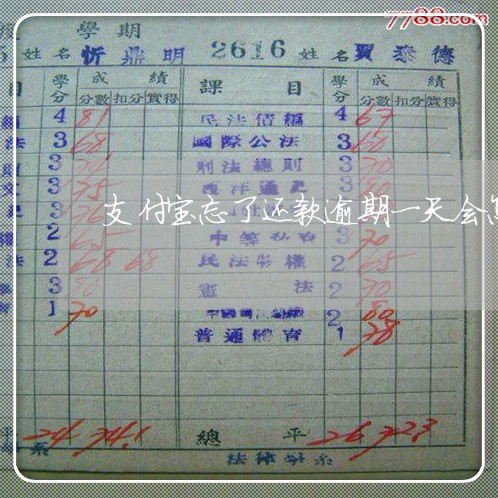 7788.com
學期
姓名 忻鼎明 2616 姓名 賈泰德
目 學分 成績 課目 學分 成績
分數 扣分 實得 分數 扣分 實得
4 81 民法債編 4 67
法 3 68 國際公法 3 60
3 刑法總則 3 70
文 3 75 西洋通史 3
支付宝忘了还款逾期一天会怎
2 65 3 70
法 2 68 68 民法物權 2 65
3 80 憲法 2 70
1 70 2 80
普通體育 1 78
平 24 74.1 總平 26 72.3
系 法律學系